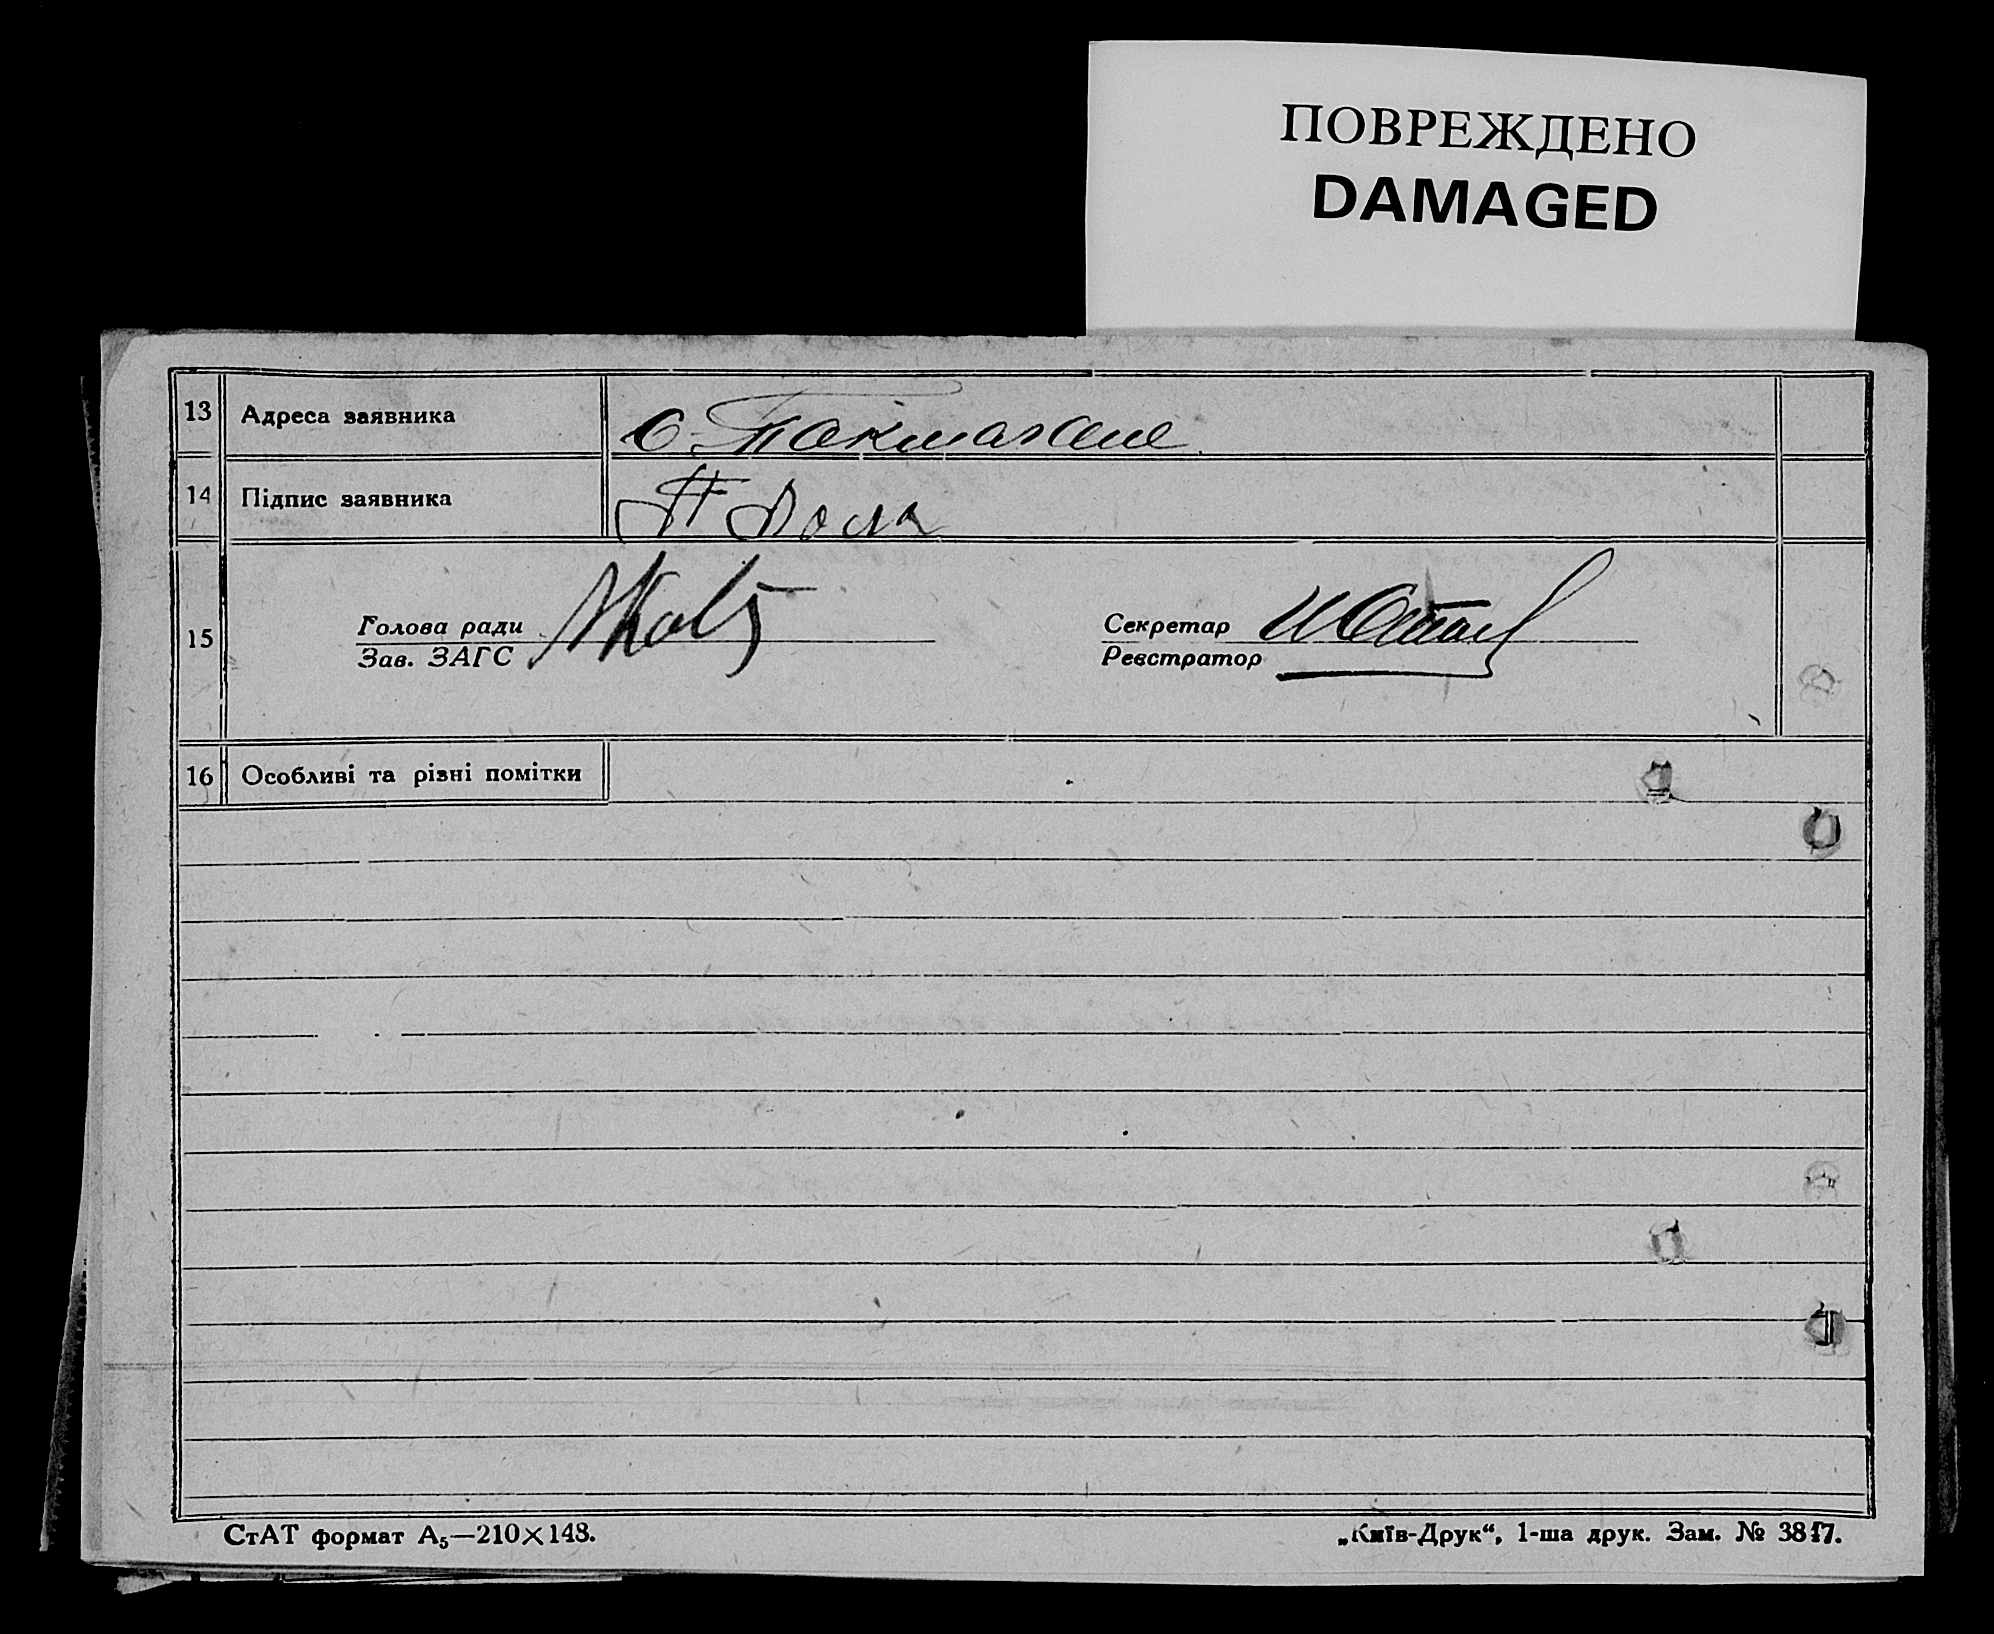 ПОВРЕЖДЕНО
DAMAGED
13 Адреса заявника с. Токмагане
14 Підпис заявника П
15 Голова ради Секретар
Зав. ЗАГС Реєстратор
16 Особливі та різні помітки
СтАТ формат А₅—210×148. „Київ-Друк“, 1-ша друк. Зам. № 3817.